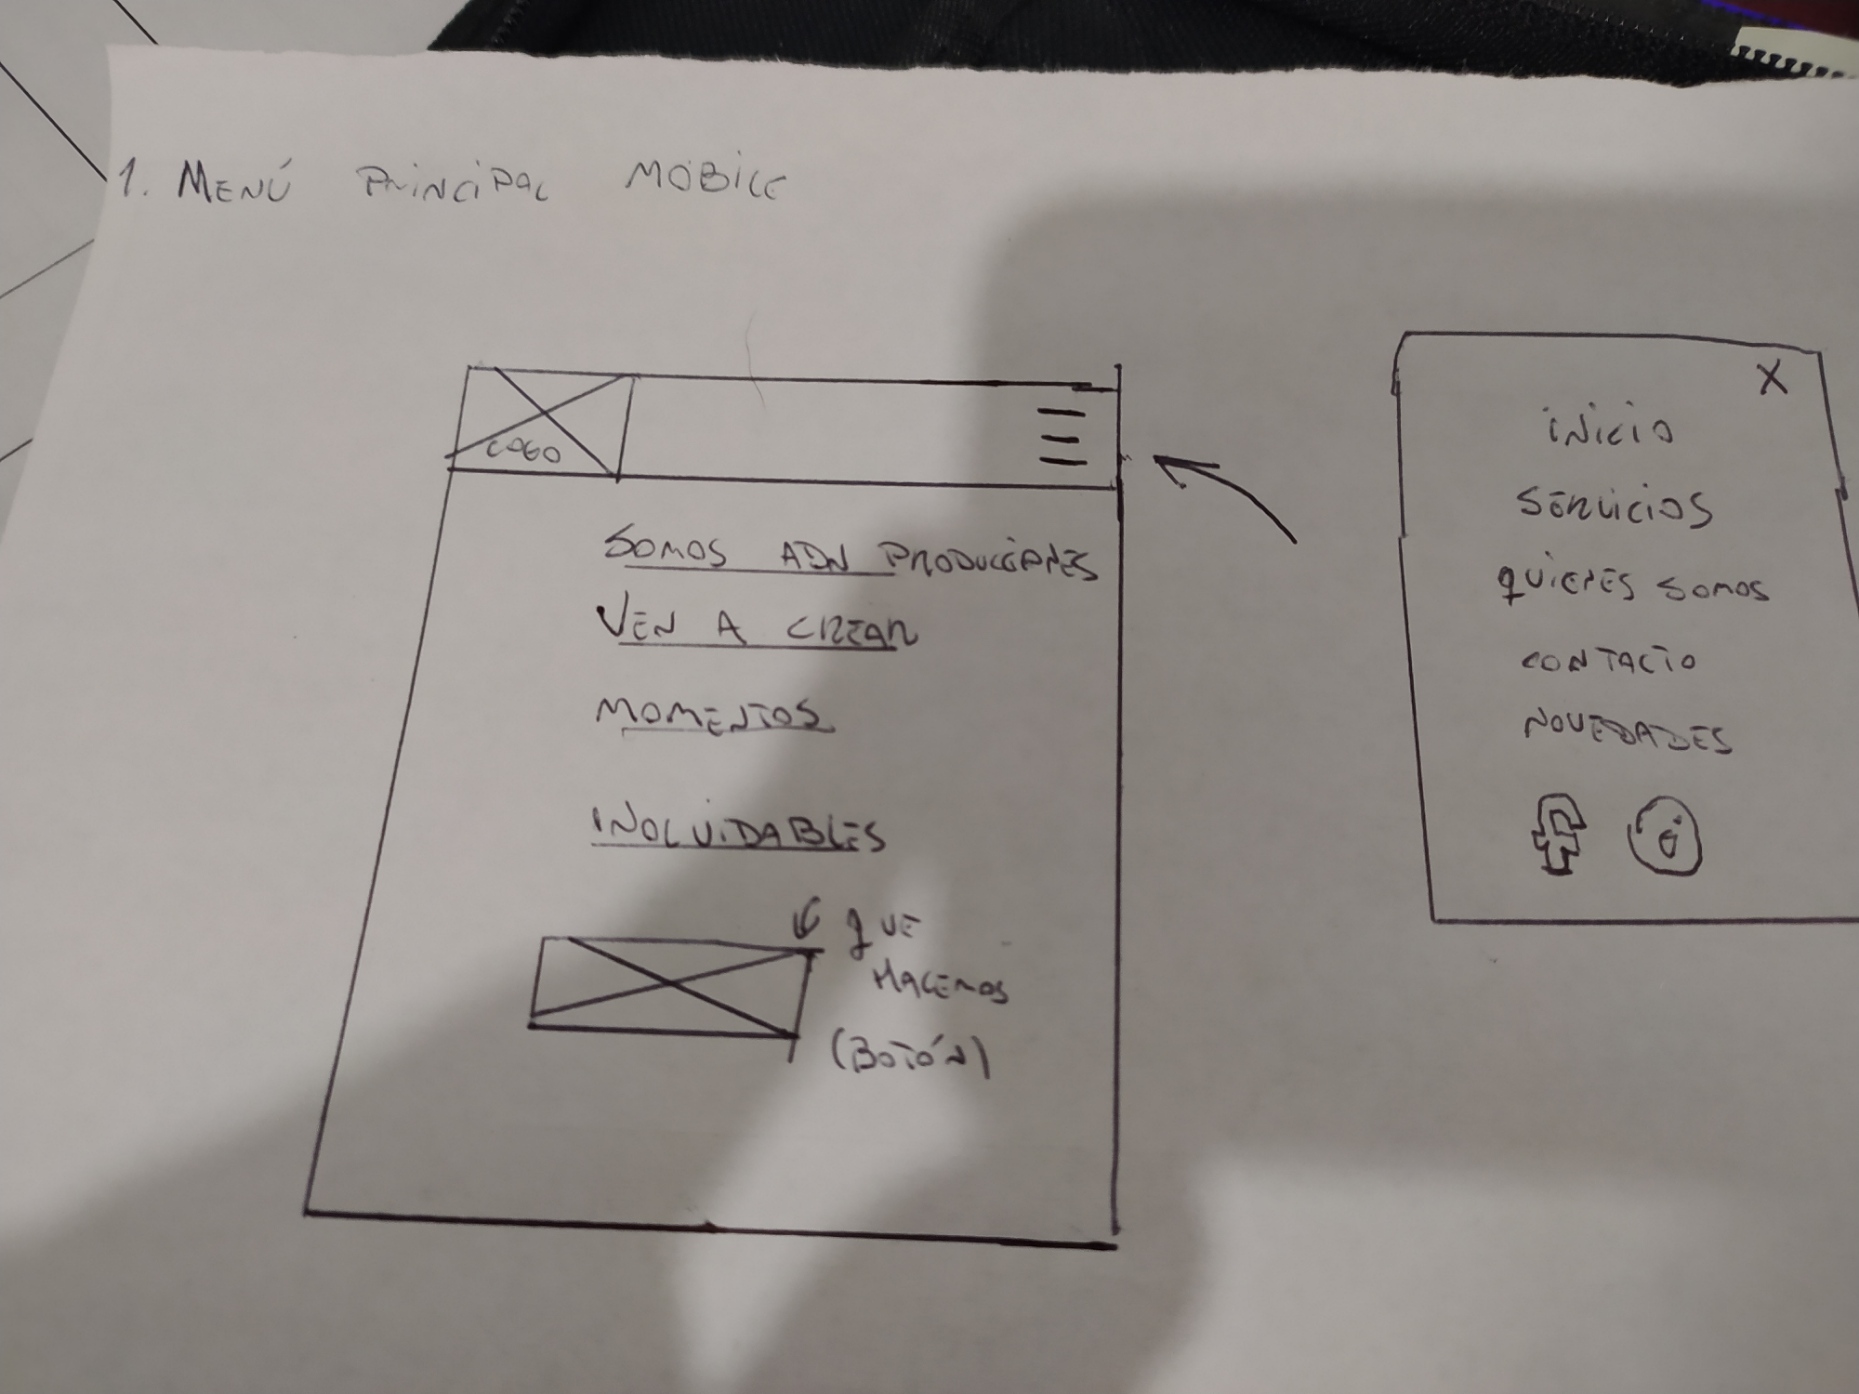 1. MENÚ PRINCIPAL MOBILE
LOGO
SOMOS ADN PRODUCCIONES
VEN A CREAR
MOMENTOS
INOLVIDABLES
QUE
HACEMOS
(BOTÓN)
X
INICIO
SERVICIOS
QUIENES SOMOS
CONTACTO
NOVEDADES